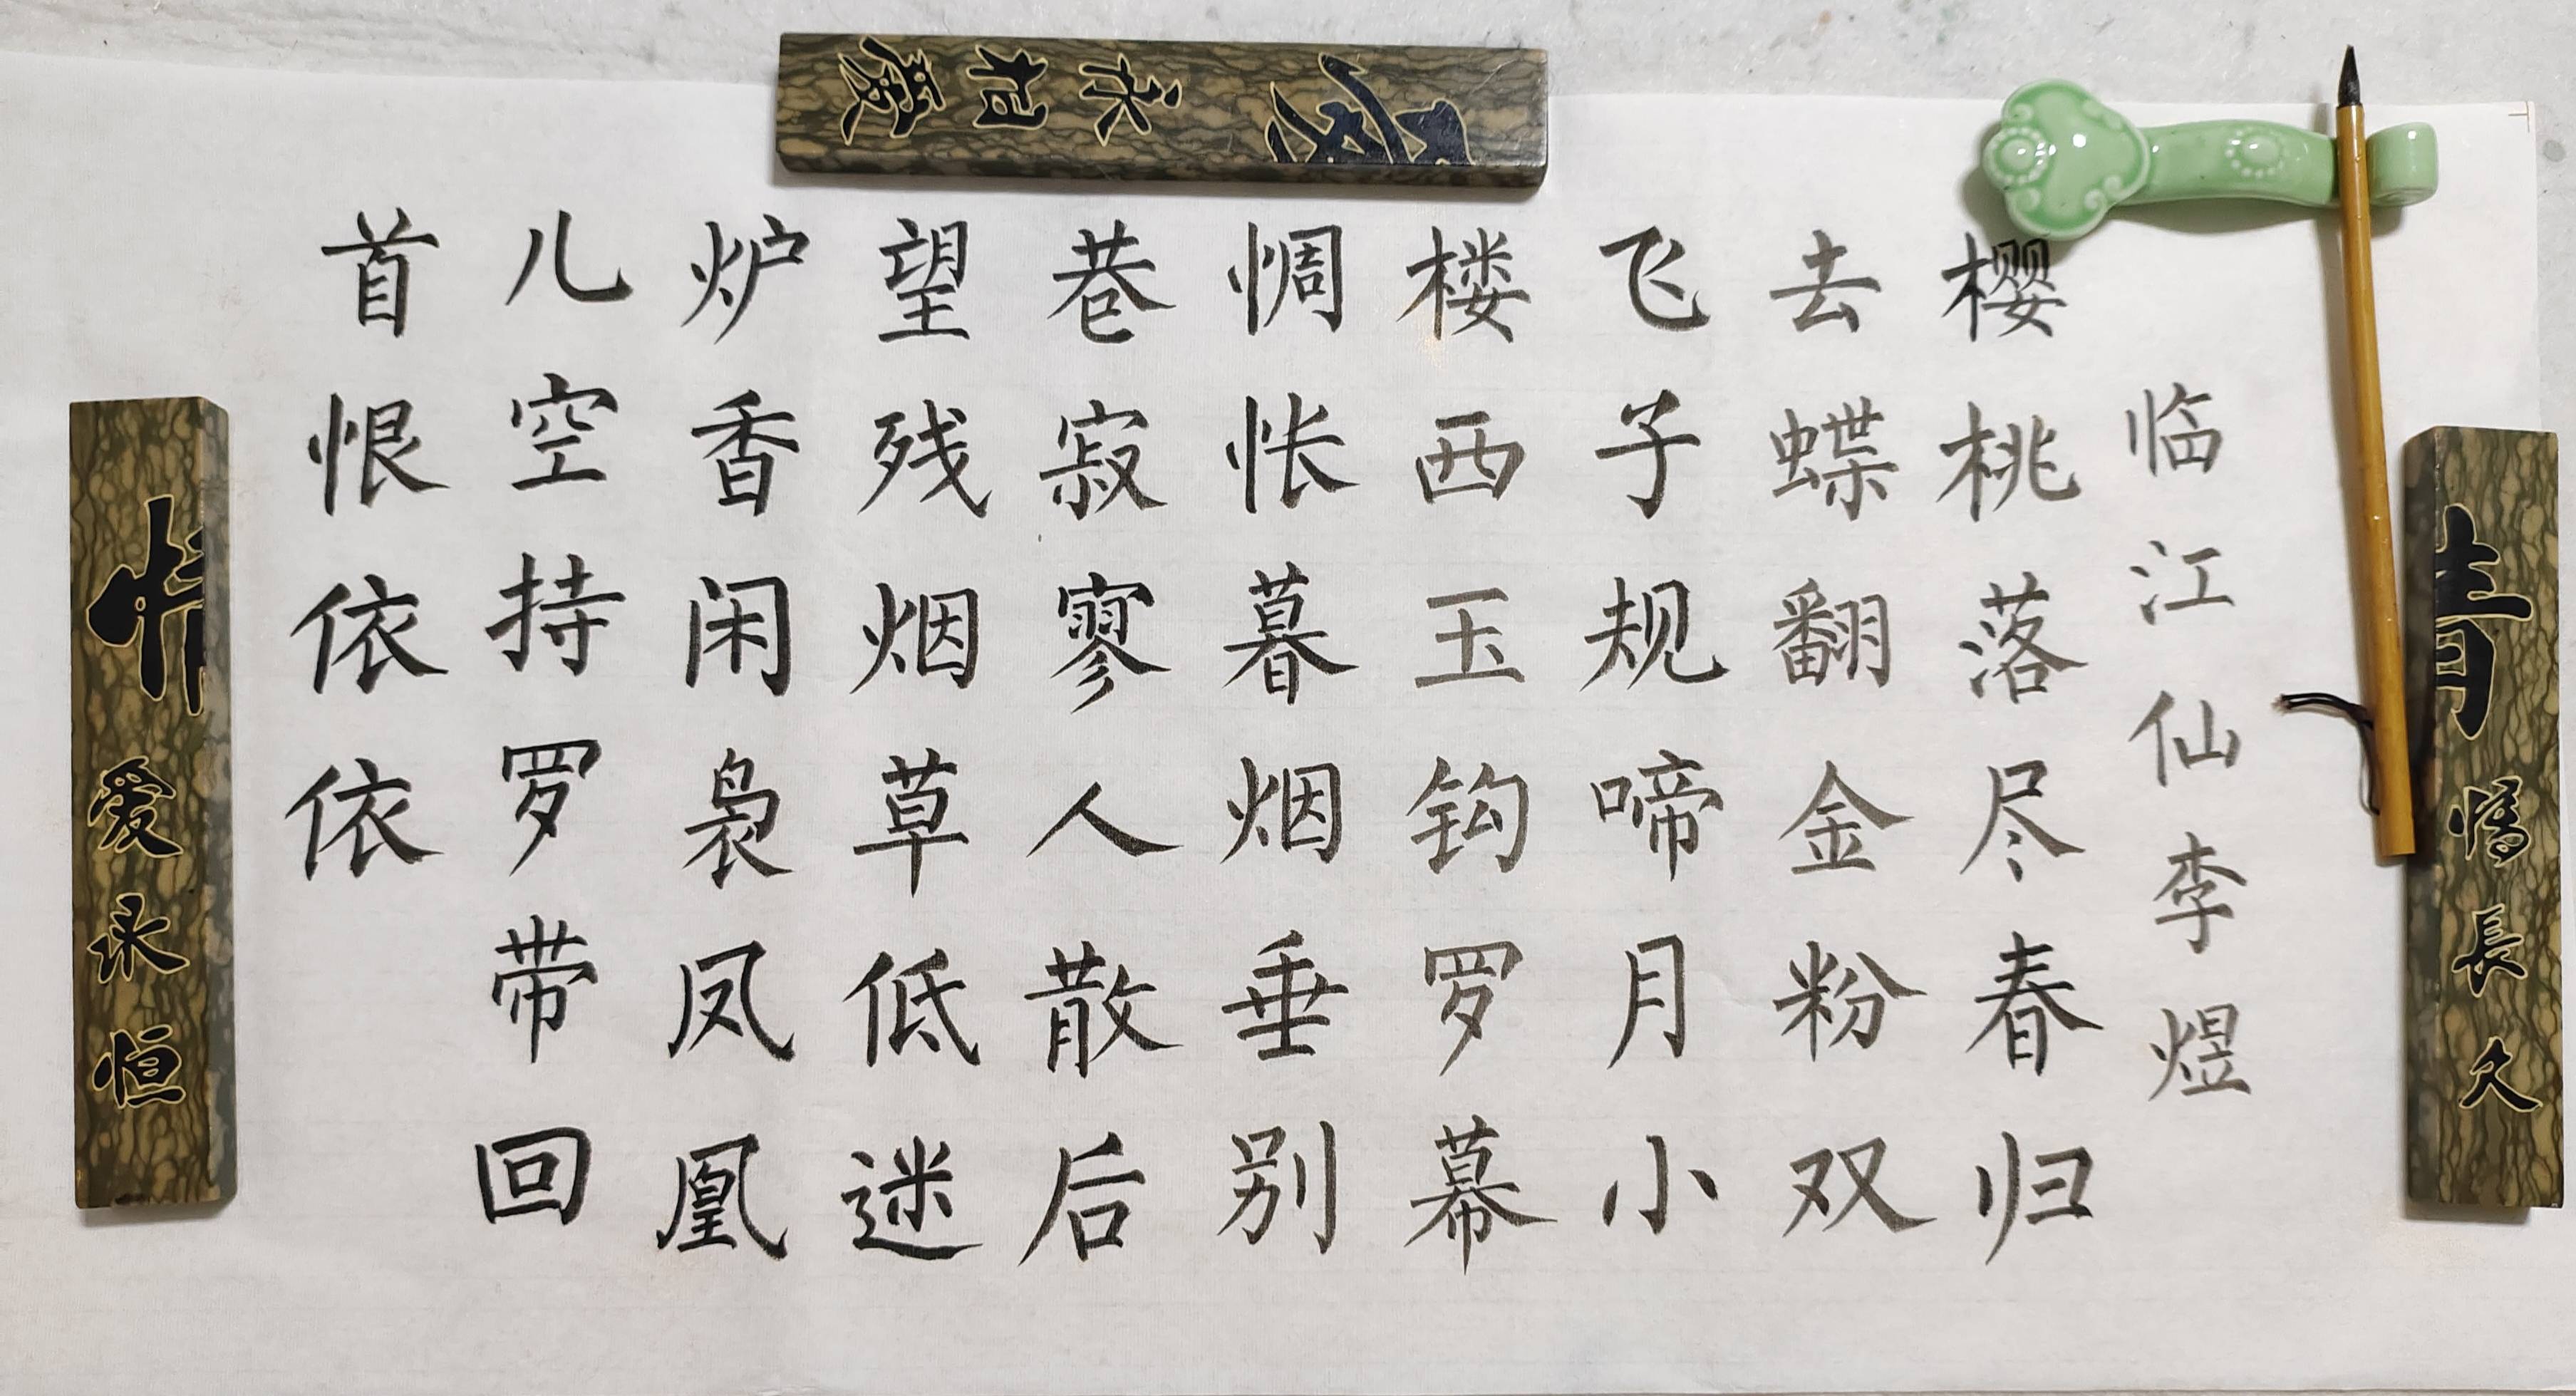 临江仙李煜
樱桃落尽春归
去蝶翻金粉双
飞子规啼月小
楼西玉钩罗幕
惆怅暮烟垂别
巷寂寥人散后
望残烟草低迷
炉香闲袅凤凰
儿空持罗带回
首恨依依
永相爱
情
爱永恒
情
情长久